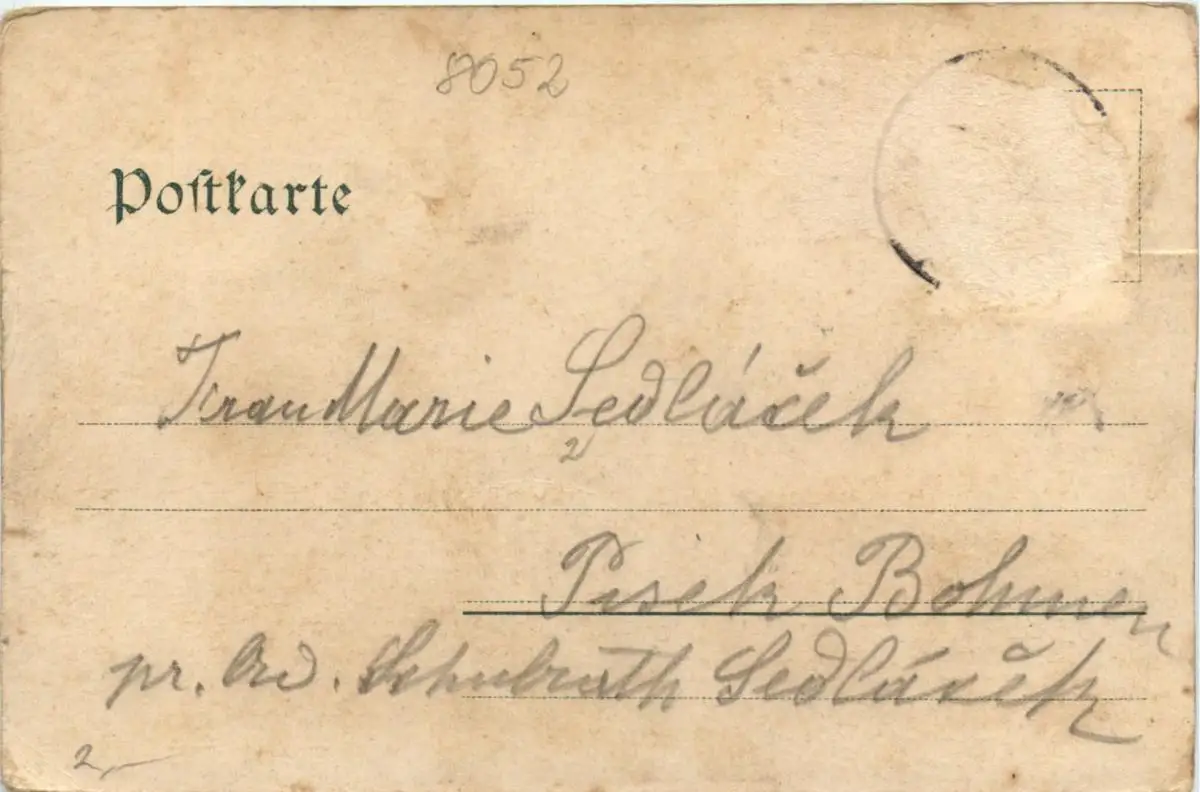 8052
Postkarte
Frau Marie Sedláček
2
Pisek Bohmen
pr. Ad. Schulrath Sedláček
2,—